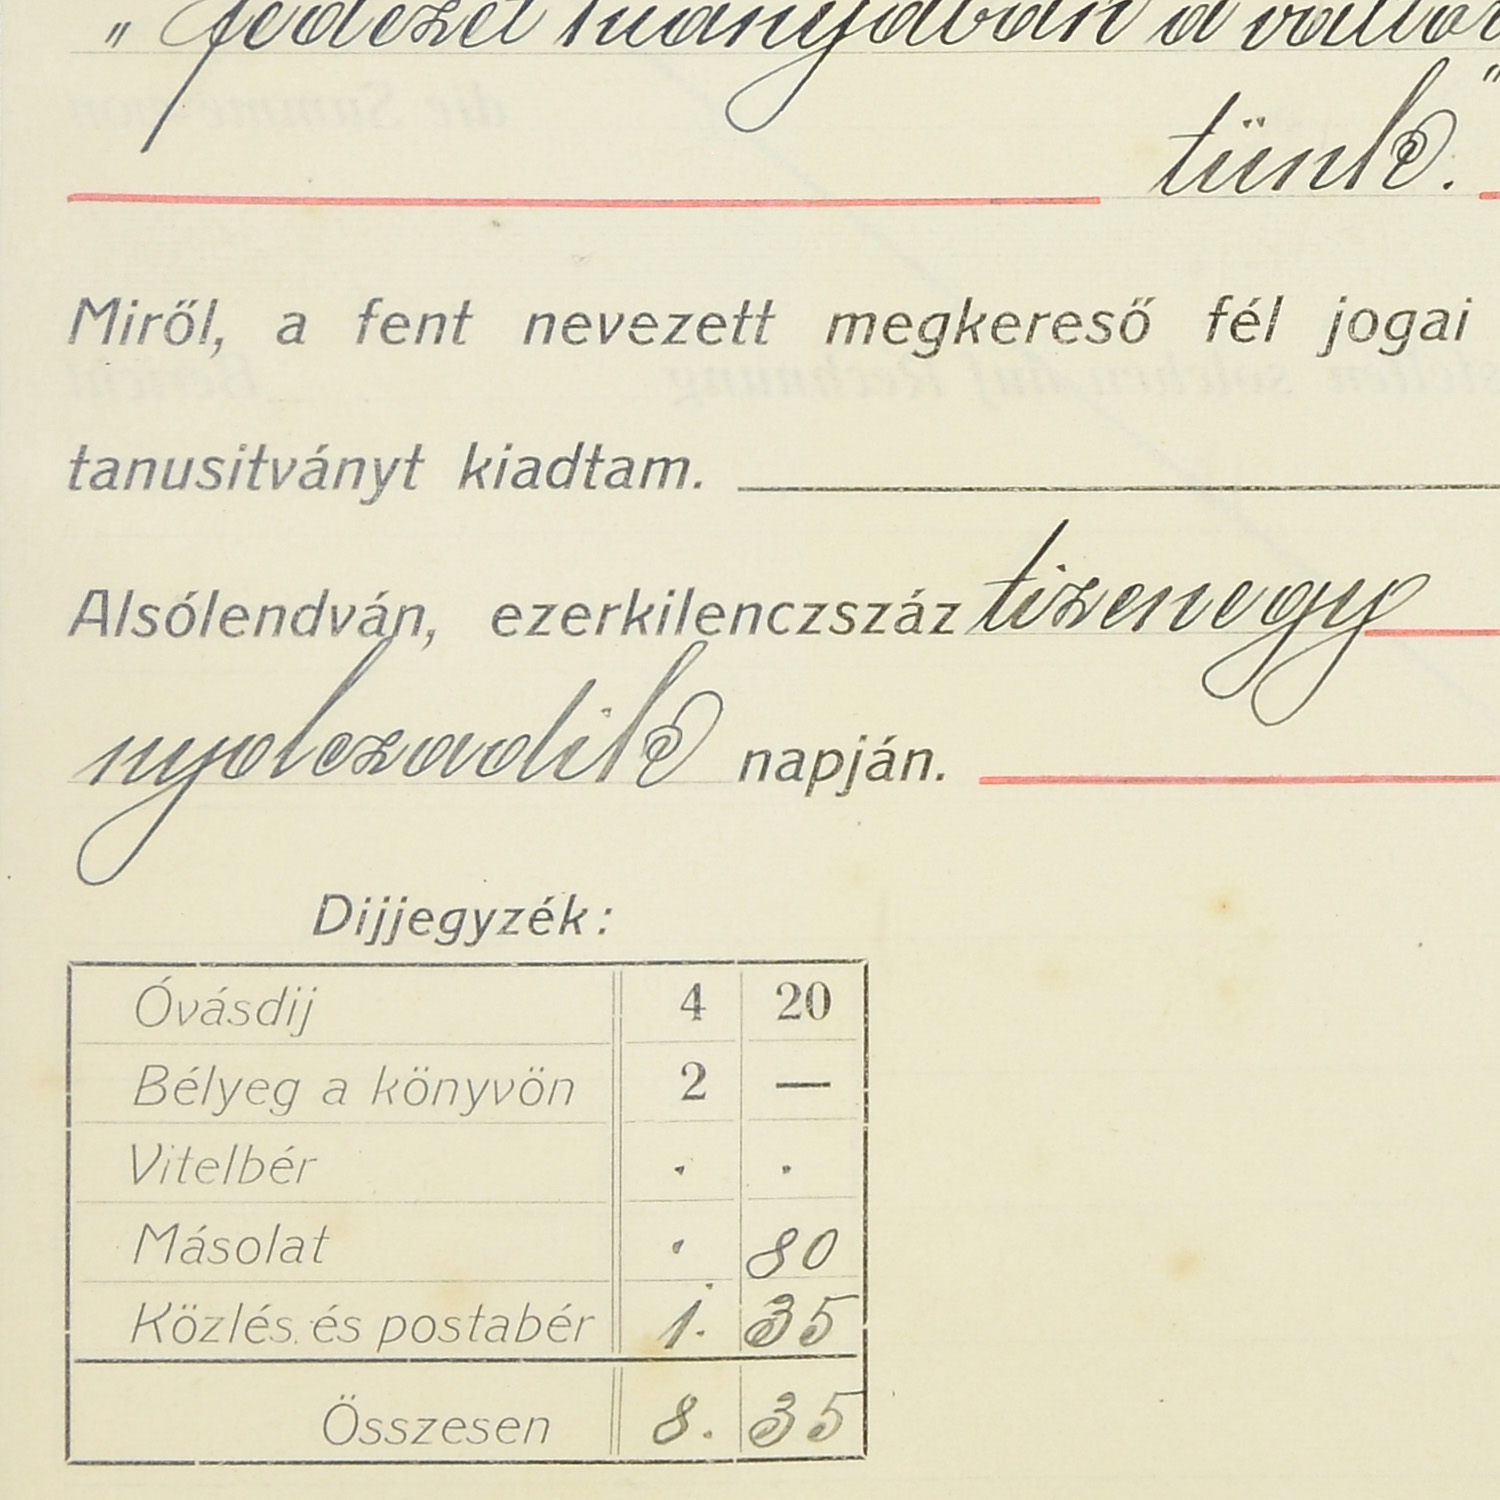 „ fedezet hiányában a váltót
tünk."
Miről, a fent nevezett megkereső fél jogai
tanusitványt kiadtam.
Alsólendván, ezerkilenczszáz tizenegy
nyolczadik napján.
Dijjegyzék:
Óvásdij 4 20
Bélyeg a könyvön 2 —
Vitelbér . .
Másolat . 80
Közlés és postabér 1. 35
Összesen 8. 35